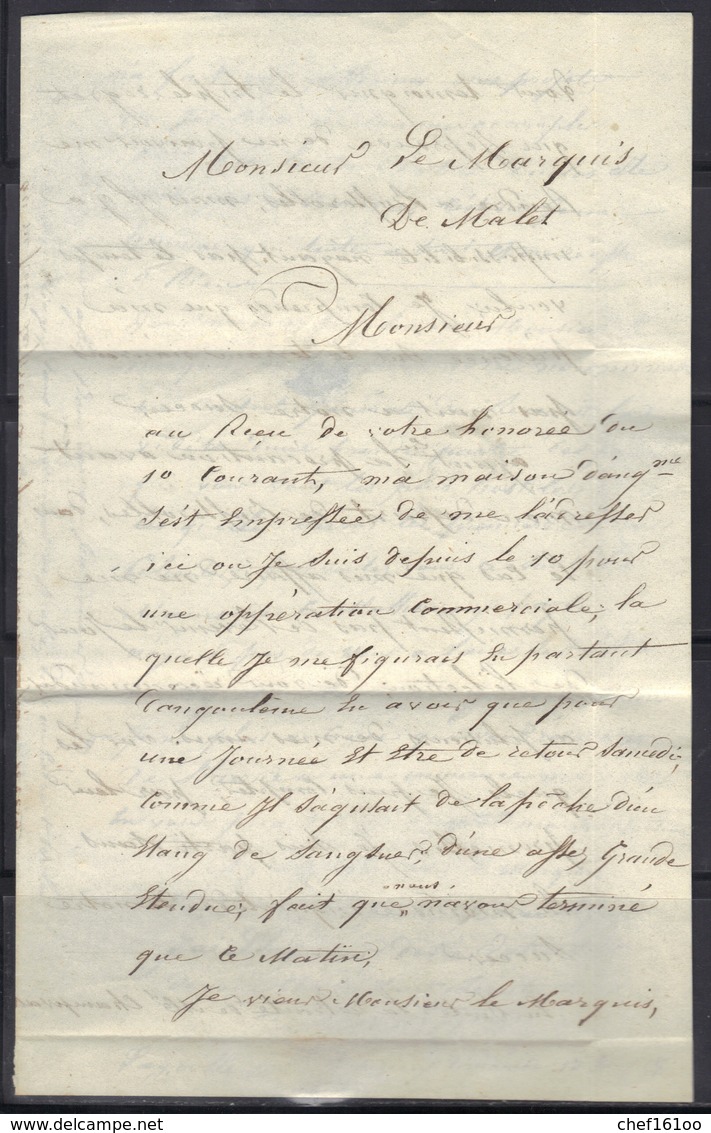 Monsieur Le Marquis
De Malet
Monsieur
au Recu de votre honoree du
10 Courant, má maison d'angme
s'est Empressée de me l'adresser
ici ou Je suis depuis le 10 pour
une oppèration Commerciale, la
quelle Je me figurais En partant
d'angoulême En avoir que pour
une Journée Et Etre de retour Samedi,
Comme Il s'agissait de la pêche d'un
Etang de Sangsues, d'une assez Grande
Etendue, fait que nous n'avons terminé
que ce Matin,
Je viens Monsieur le Marquis,
chef16100